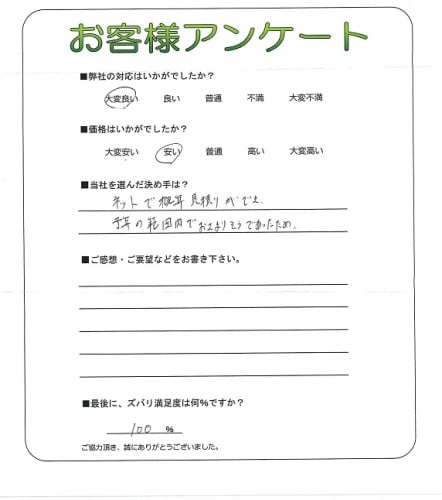 お客様アンケート
■弊社の対応はいかがでしたか?
大変良い 良い 普通 不満 大変不満
■価格はいかがでしたか?
大変安い 安い 普通 高い 大変高い
■当社を選んだ決め手は?
ネットで概算見積りができ、
予算の範囲内でおさまりそうであったため。
■ご感想・ご要望などをお書き下さい。
■最後に、ズバリ満足度は何%ですか?
100 %
ご協力頂き、誠にありがとうございました。